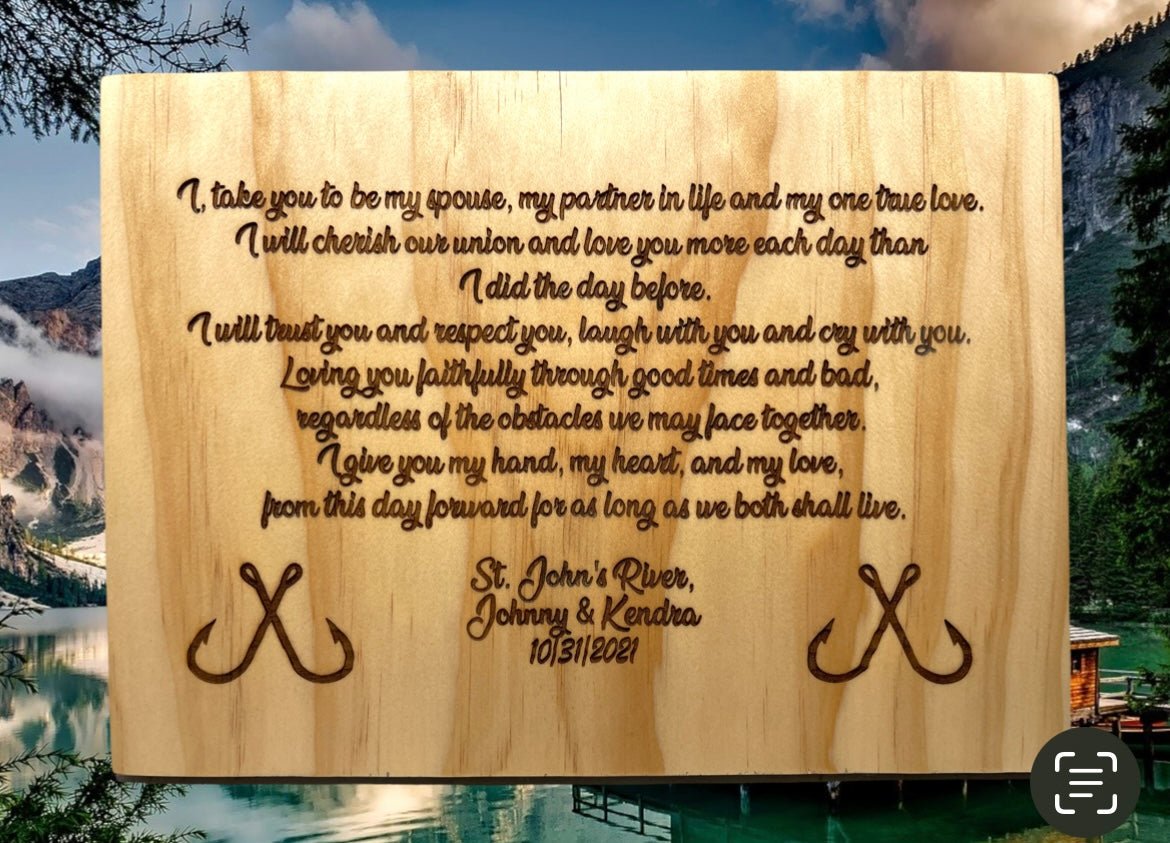 I, take you to be my spouse, my partner in life and my one true love.
I will cherish our union and love you more each day than
I did the day before.
I will trust you and respect you, laugh with you and cry with you.
Loving you faithfully through good times and bad,
regardless of the obstacles we may face together.
I give you my hand, my heart, and my love,
from this day forward for as long as we both shall live.
St. John's River,
Johnny & Kendra
10/31/2021